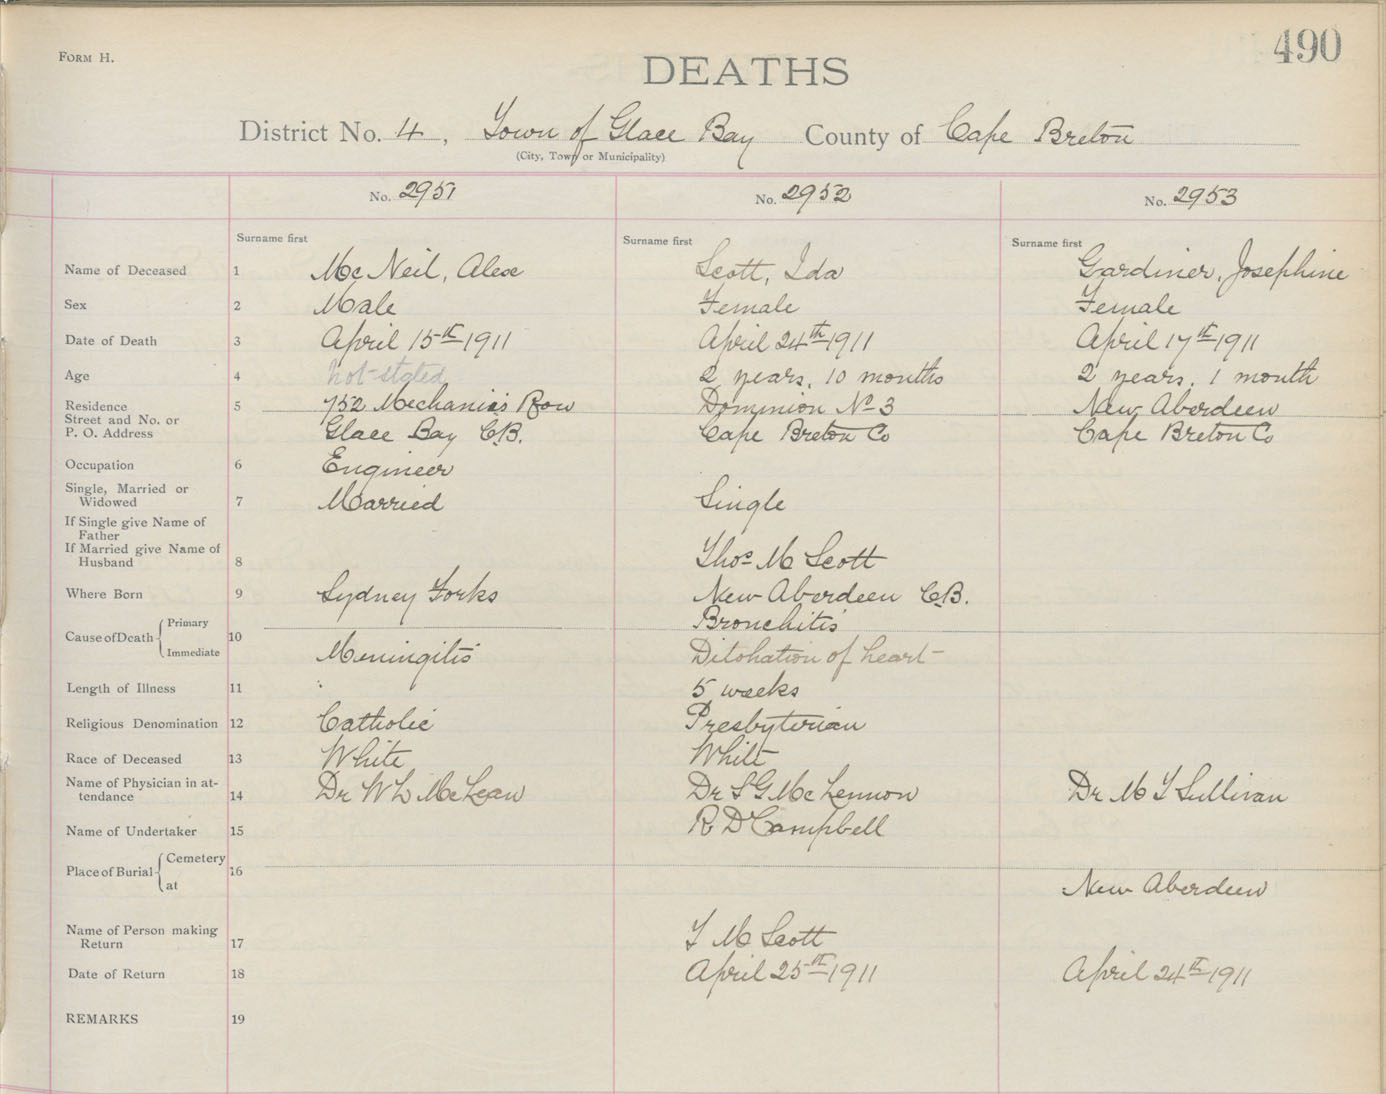 490
FORM H.
DEATHS
District No. 4, Town of Glace Bay County of Cape Breton
(City, Town or Municipality)
No. 2951 No. 2952 No. 2953
Surname first Surname first Surname first
Name of Deceased 1 McNeil, Alex Scott, Ida Gardiner, Josephine
Sex 2 Male Female Female
Date of Death 3 April 15th 1911 April 24th 1911 April 17th 1911
Age 4 not stated 2 years, 10 months 2 years, 1 month
Residence 5 752 Mechanics Row Dominion No 3 New Aberdeen
Street and No. or
P. O. Address Glace Bay C.B. Cape Breton Co Cape Breton Co
Occupation 6 Engineer
Single, Married or
Widowed 7 Married Single
If Single give Name of
Father
If Married give Name of
Husband 8 Thos M Scott
Where Born 9 Sydney Forks New Aberdeen C.B.
Cause of Death Primary 10 Bronchitis
Immediate Meningitis Ditohation of heart
Length of Illness 11 5 weeks
Religious Denomination 12 Catholic Presbyterian
Race of Deceased 13 White White
Name of Physician in at-
tendance 14 Dr W L McLean Dr S G McLennon Dr M T Sullivan
Name of Undertaker 15 R D Campbell
Place of Burial Cemetery 16
at New Aberdeen
Name of Person making
Return 17 T M Scott
Date of Return 18 April 25th 1911 April 24th 1911
REMARKS 19